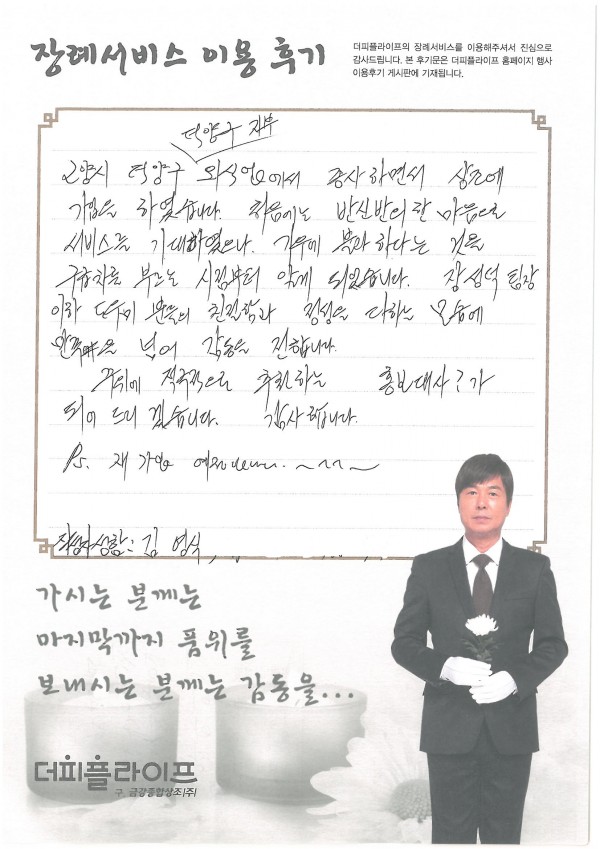 장례서비스 이용 후기
더피플라이프의 장례서비스를 이용해주셔서 진심으로
감사드립니다. 본 후기문은 더피플라이프 홈페이지 행사
이용후기 게시판에 기재됩니다.
덕양구 지부
고양시 덕양구 외식업에서 종사하면서 상조에
가입을 하였습니다. 처음에는 반신반의한 마음으로
서비스를 기대하였으나, 기우에 불과하다는 것을
구급차를 부르는 시점부터 알게 되었습니다. 장성덕 팀장
이하 도우미 분들의 친절함과 정성을 다하는 모습에
만족을 넘어 감동을 전합니다.
주위에 적극적으로 추천하는 홍보대사?가
되어 드리겠습니다. 감사합니다.
Ps. 재 가입
작성자성함: 김영식
가시는 분께는
마지막까지 품위를
보내시는 분께는 감동을...
더피플라이프
구. 금강종합상조(주)